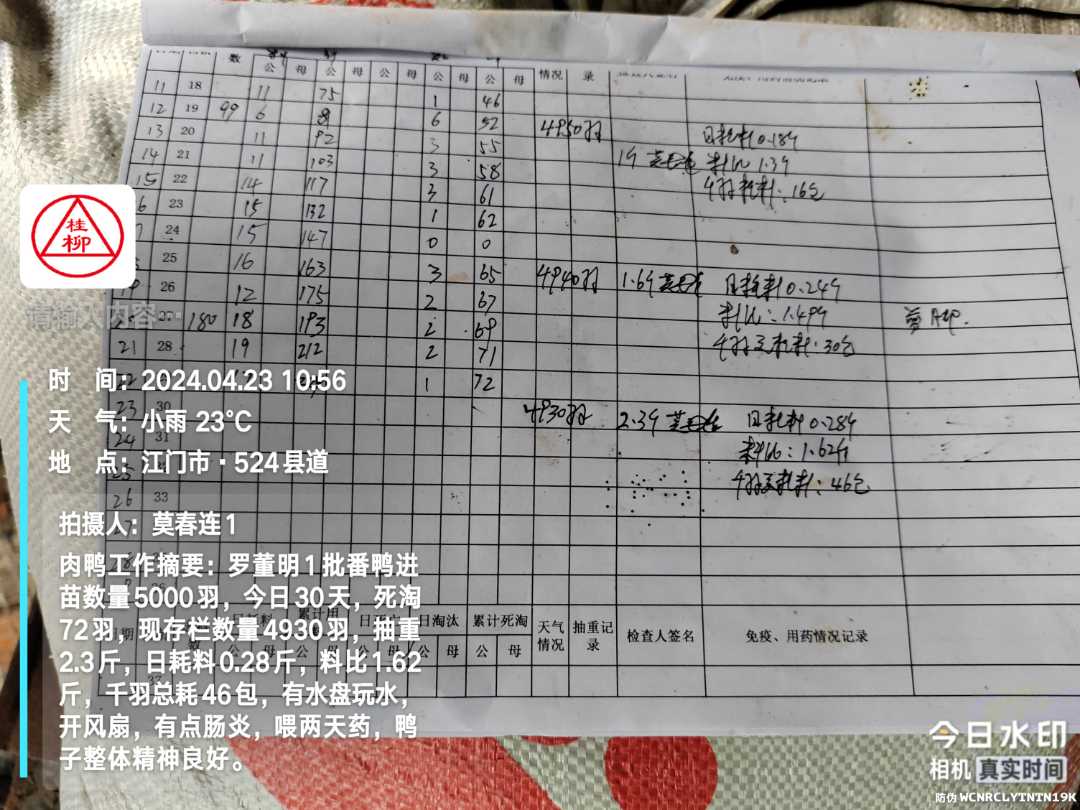 数 公 母 公 母 公 母 公 母 公 母 情况 录
11 18 11 75 1 46
12 19 99 6 8 6 52 4950羽 日耗料0.18斤
13 20 11 92 3 55
14 21 11 103 3 58 1斤 莫春连 料比1.3斤
15 22 14 117 3 61 千羽耗料:16包
23 15 132 1 62
24 15 147 0 0
25 16 163 3 65 4940羽 1.6斤 莫春连 日耗料0.24斤
26 12 175 2 67 料比:1.49斤
180 18 193 2 69
21 28 19 212 2 71 千羽总耗料:30包
1 72
23 30 4930羽 2.3斤 莫春连 日耗料0.28斤
24 31 料比:1.62斤
千羽总耗料:46包
26 33
日淘汰 累计死淘 天气情况 抽重记录 检查人签名 免疫、用药情况记录
公 母 公 母
桂柳
请输入内容...
时 间:2024.04.23 10:56
天 气:小雨 23℃
地 点:江门市·524县道
拍摄人:莫春连1
肉鸭工作摘要:罗董明1批番鸭进
苗数量5000羽,今日30天,死淘
72羽,现存栏数量4930羽,抽重
2.3斤,日耗料0.28斤,料比1.62
斤,千羽总耗46包,有水盘玩水,
开风扇,有点肠炎,喂两天药,鸭
子整体精神良好。
今日水印
相机 真实时间
防伪 WCNRCLYTNTN19K